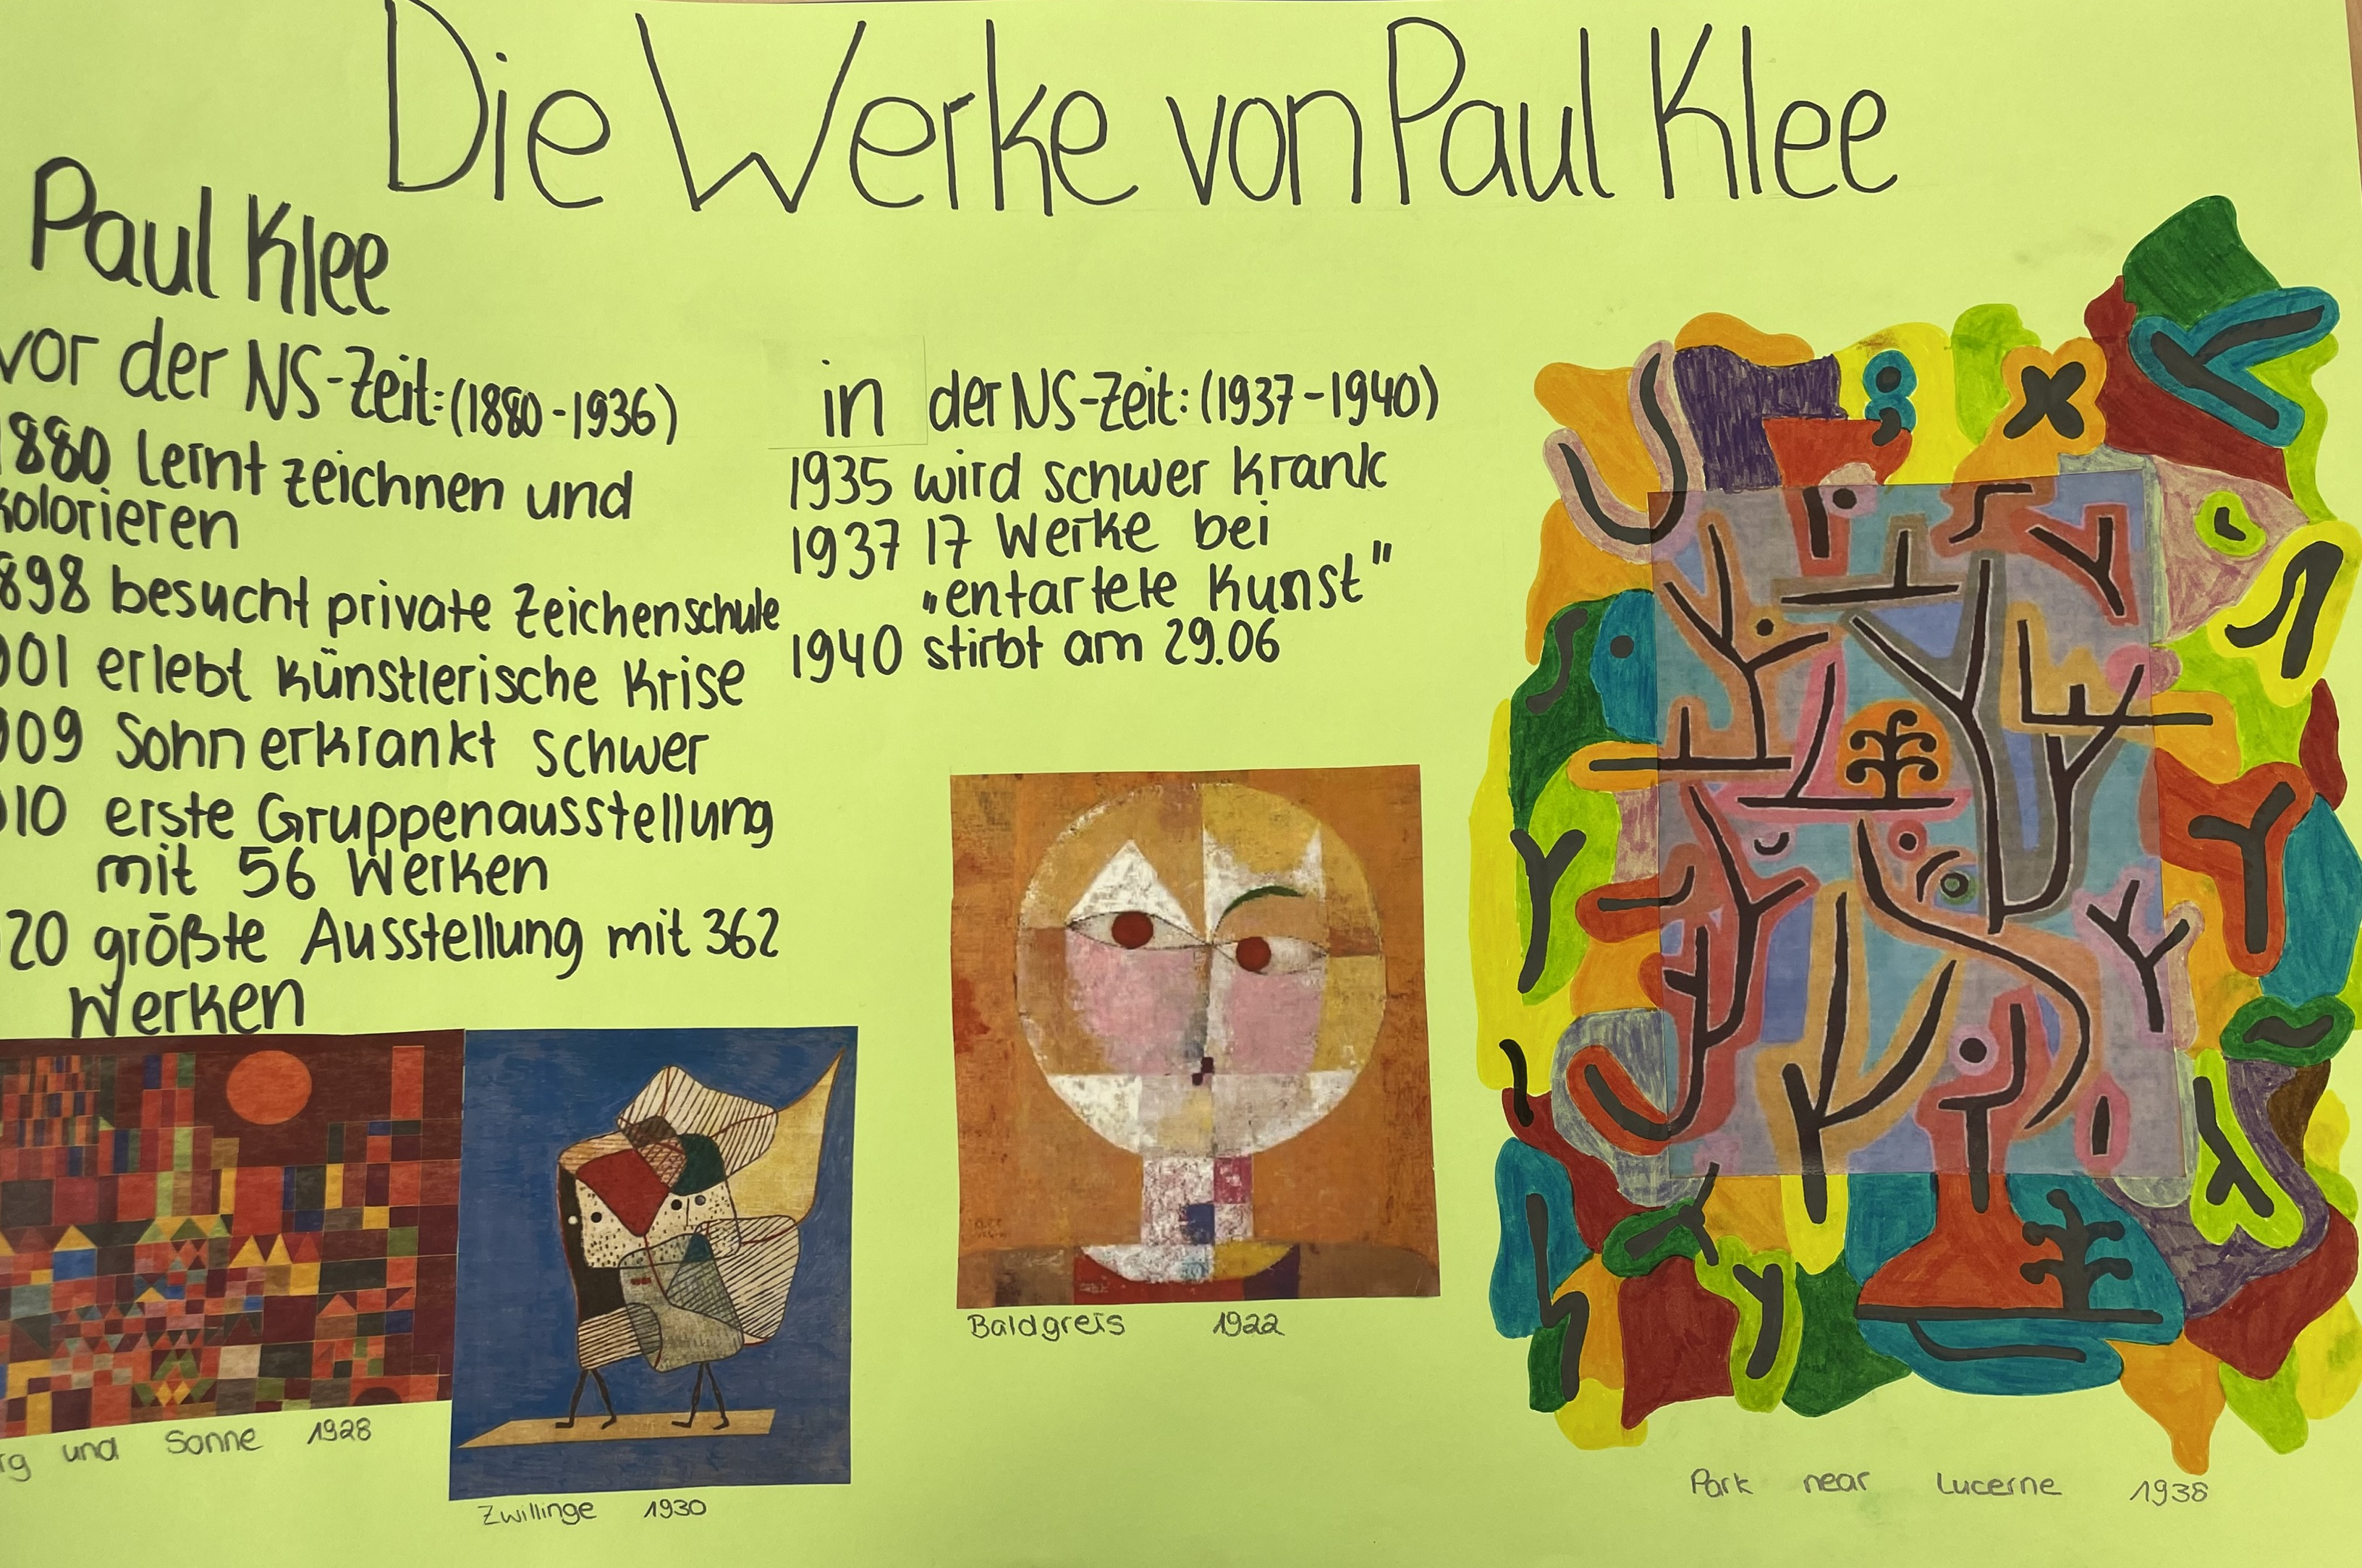 Die Werke von Paul Klee
Paul Klee
vor der NS-Zeit: (1880-1936)
1880 lernt zeichnen und
kolorieren
898 besucht private Zeichenschule
901 erlebt künstlerische Krise
909 Sohn erkrankt schwer
910 erste Gruppenausstellung
mit 56 Werken
20 größte Ausstellung mit 362
Werken
in der NS-Zeit: (1937-1940)
1935 wird schwer krank
1937 17 Werke bei
„entartete Kunst"
1940 stirbt am 29.06
rg und Sonne 1928
Zwillinge 1930
Baldgreis 1922
Park near Lucerne 1938